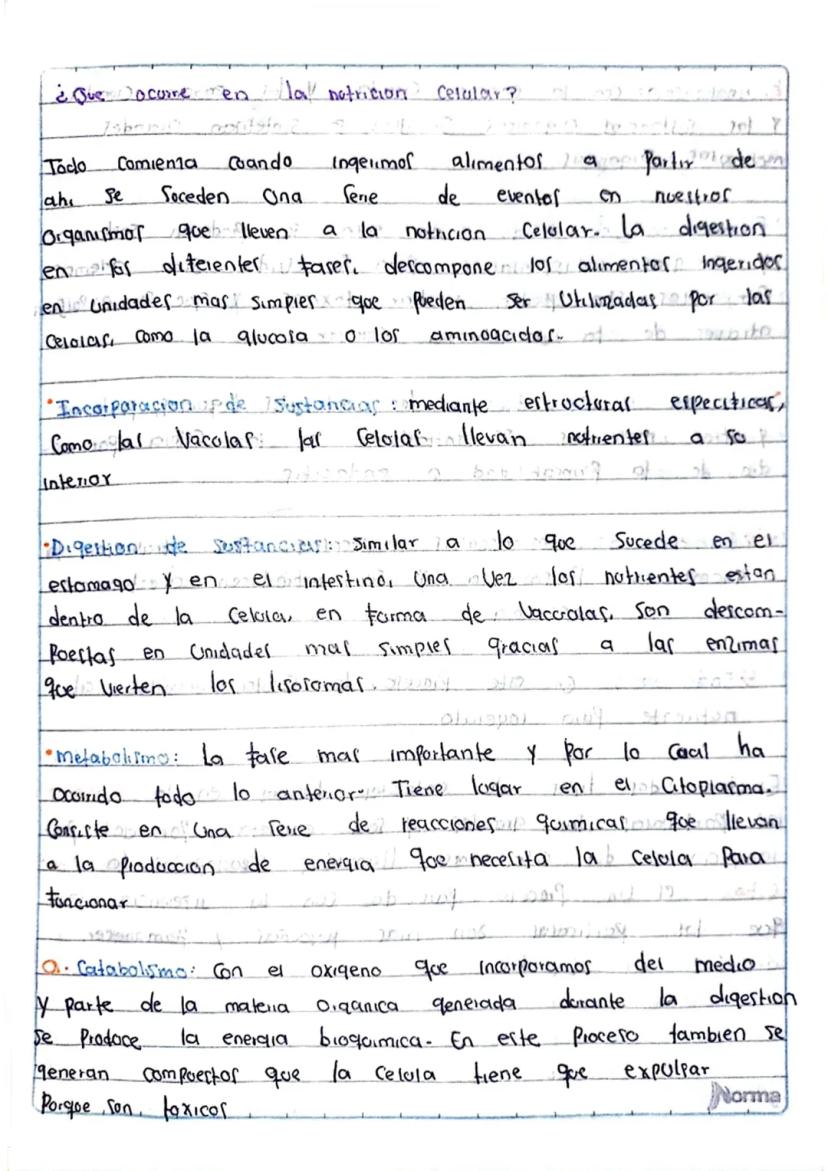 ¿Que ocurre en la nutricion Celular?
Todo Comienza Cuando ingerimos alimentos a Partir de
ahi Se Suceden Una Serie de eventos en nuestros
Organismos que lleven a la nutricion Celular. La digestion
en las diferentes fases, descompone los alimentos ingeridos
en unidades mas simples que pueden ser Utilizadas por las
Celulas, Como la glucosa o los aminoacidos.
• Incorporacion de Sustancias: mediante estructuras especificas,
Como las Vacolas las Celulas llevan nutrientes a su
interior
• Digestion de Sustancias: Similar a lo que Sucede en el
estomago y en el intestino, Una Vez los nutrientes estan
dentro de la Celula, en forma de Vacuolas, Son descom-
Puestas en Unidades mas Simples gracias a las enzimas
que Vierten los lisosomas.
• Metabolismo: La fase mas importante y por lo Cual ha
Ocurrido todo lo anterior. Tiene lugar en el Citoplasma.
Consiste en Una Serie de reacciones quimicas que llevan
a la Produccion de energia que necesita la Celula Para
funcionar
a. Catabolismo: Con el oxigeno que incorporamos del medio
y parte de la materia Organica generada durante la digestion
Se Produce la energia bioquimica. En este Proceso tambien se
generan compuestos que la Celula tiene que expulsar
Porque Son toxicos
Norma